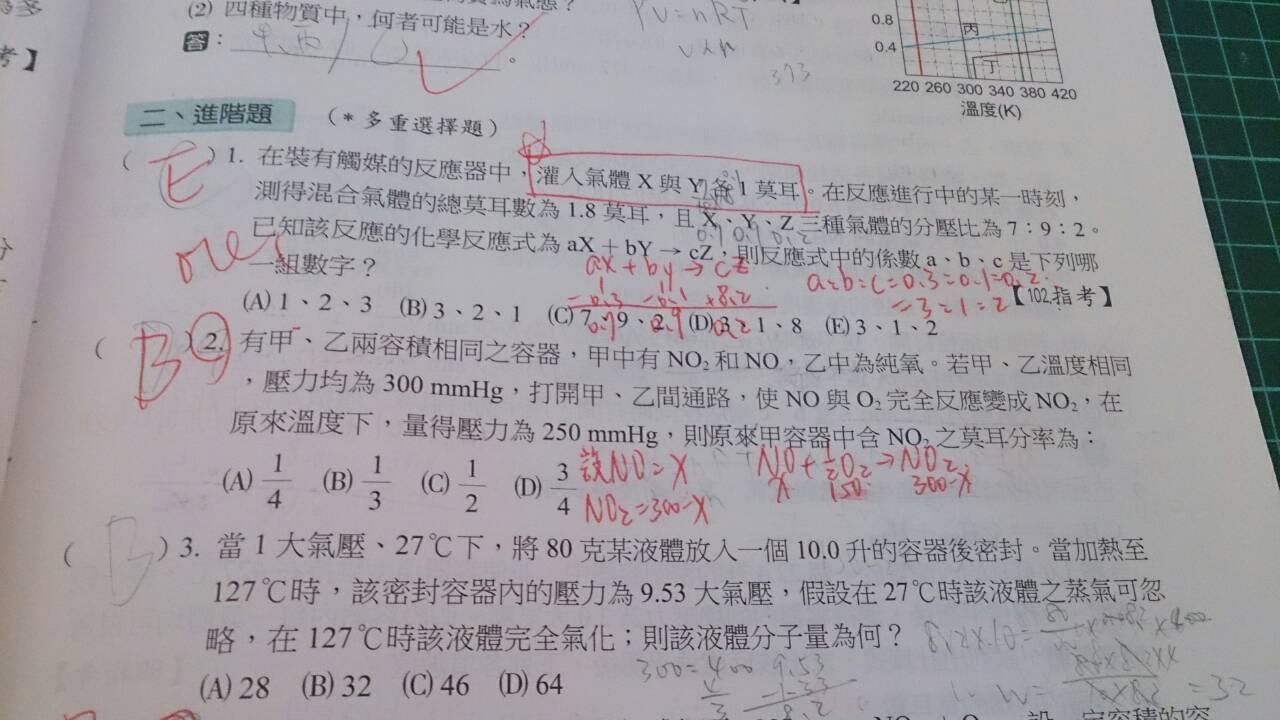 (2) 四種物質中，何者可能是水？
答：
PV=nRT
V∝n
373
0.8
0.4
丙
丁
220 260 300 340 380 420
溫度(K)
考】
二、進階題 （*多重選擇題）
( E ) 1. 在裝有觸媒的反應器中，灌入氣體 X 與 Y 各 1 莫耳。在反應進行中的某一時刻，
測得混合氣體的總莫耳數為 1.8 莫耳，且 X、Y、Z 三種氣體的分壓比為 7：9：2。
0.7 0.9 0.2
已知該反應的化學反應式為 aX + bY → cZ，則反應式中的係數 a、b、c 是下列哪
一組數字？
【102.指考】
aX + bY → cZ
1 1
-0.3 -0.1 +0.2
0.7 0.9 0.2
a:b:c=0.3:0.1:0.2
=3:1:2
(A) 1、2、3 (B) 3、2、1 (C) 7、9、2 (D) 3、1、8 (E) 3、1、2
( B ) 2. 有甲、乙兩容積相同之容器，甲中有 NO₂ 和 NO，乙中為純氧。若甲、乙溫度相同
，壓力均為 300 mmHg，打開甲、乙間通路，使 NO 與 O₂ 完全反應變成 NO₂，在
原來溫度下，量得壓力為 250 mmHg，則原來甲容器中含 NO₂ 之莫耳分率為：
(A) 1/4 (B) 1/3 (C) 1/2 (D) 3/4
設NO=X
NO₂=300-X
NO+1/2O₂→NO₂
X 150 300-X
( B ) 3. 當 1 大氣壓、27℃下，將 80 克某液體放入一個 10.0 升的容器後密封。當加熱至
127℃時，該密封容器內的壓力為 9.53 大氣壓，假設在 27℃時該液體之蒸氣可忽
略，在 127℃時該液體完全氣化；則該液體分子量為何？
(A) 28 (B) 32 (C) 46 (D) 64
300=400
9.53
1.33
8.2
8.2×10=
=32